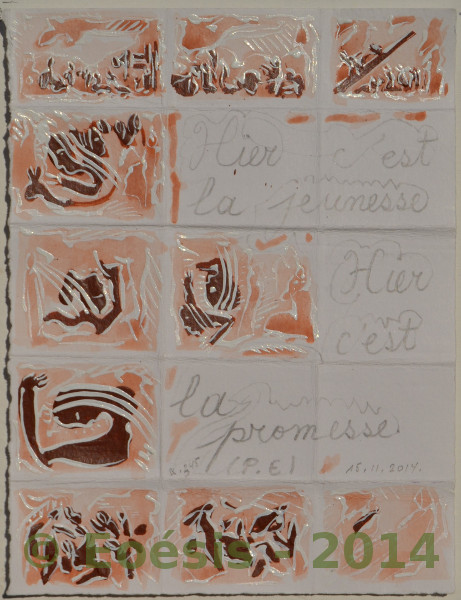 Hier c'est
la jeunesse
Hier
c'est
la
promesse
(P.E) 15.11.2014.
© Eoésis - 2014